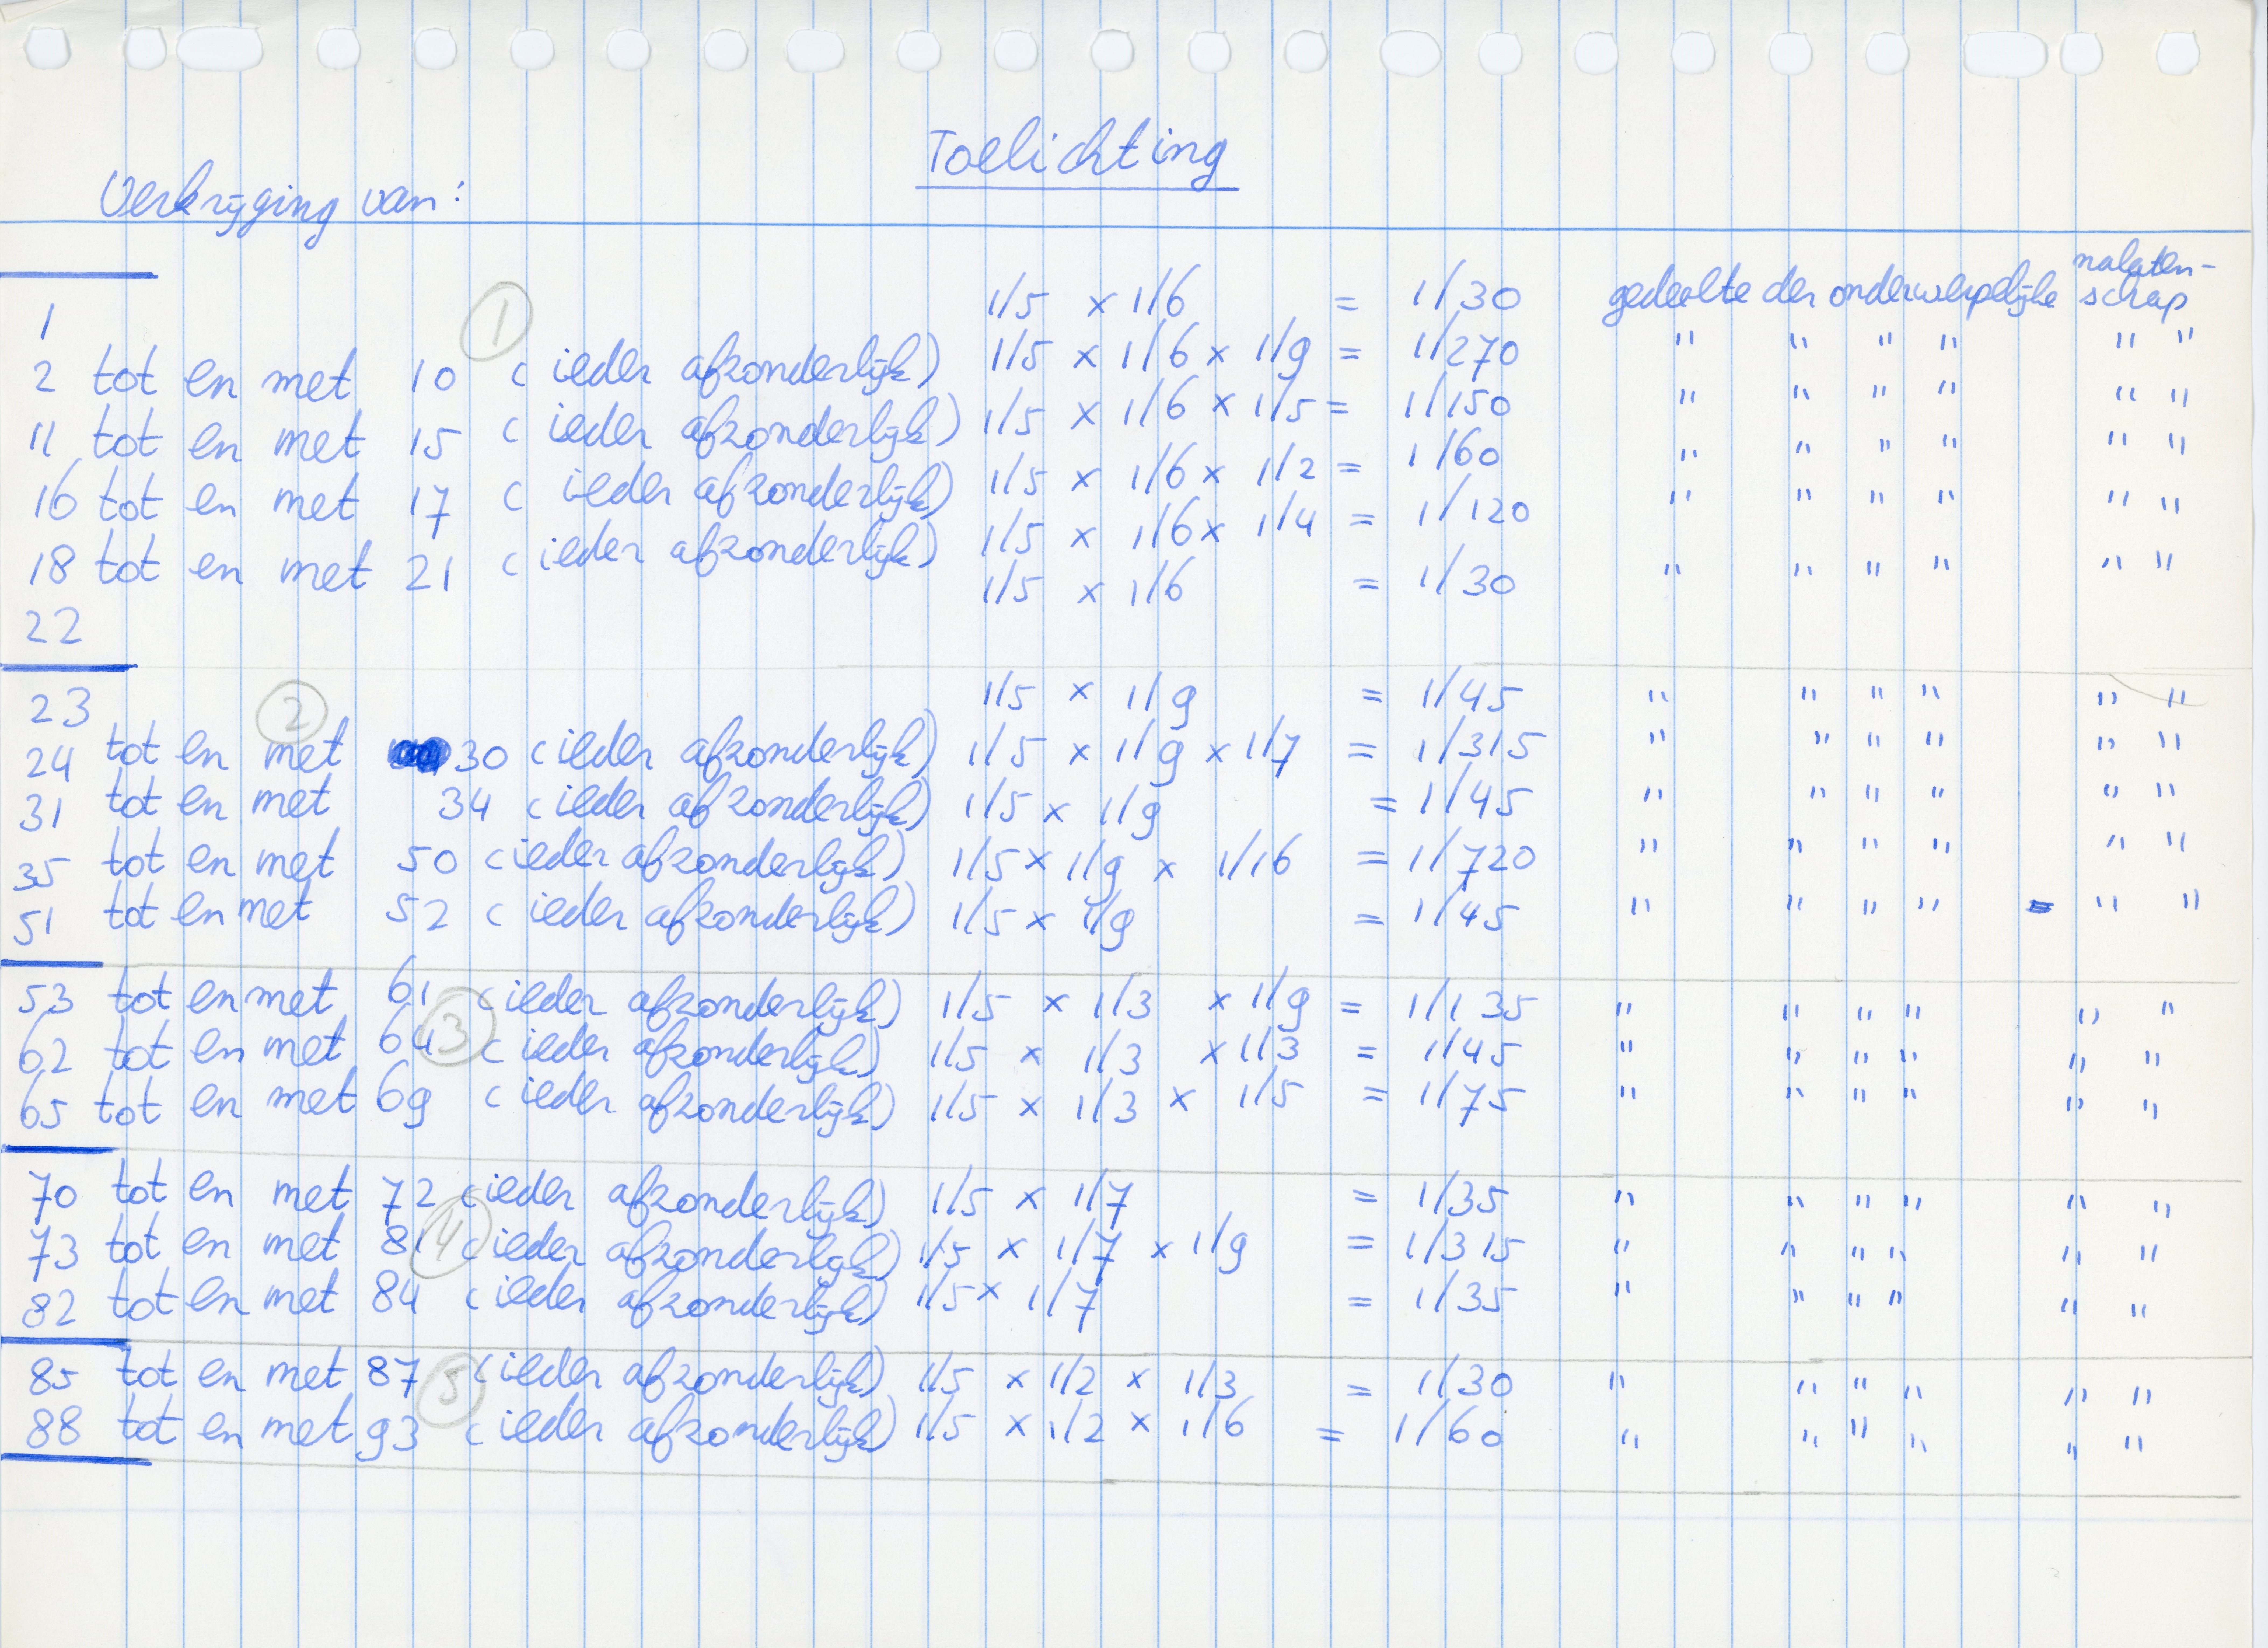 Toelichting
Verkrijging van:
1 1/5 x 1/6 = 1/30 gedeelte der onderwerpelijke nalaten-
schap
①
2 tot en met 10 (ieder afzonderlijk) 1/5 x 1/6 x 1/9 = 1/270 " " " " " "
11 tot en met 15 (ieder afzonderlijk) 1/5 x 1/6 x 1/5 = 1/150 " " " " " "
16 tot en met 17 (ieder afzonderlijk) 1/5 x 1/6 x 1/2 = 1/60 " " " " " "
18 tot en met 21 (ieder afzonderlijk) 1/5 x 1/6 x 1/4 = 1/120 " " " " " "
22 1/5 x 1/6 = 1/30 " " " " " "
23 1/5 x 1/9 = 1/45 " " " " " "
②
24 tot en met 30 (ieder afzonderlijk) 1/5 x 1/9 x 1/7 = 1/315 " " " " " "
31 tot en met 34 (ieder afzonderlijk) 1/5 x 1/9 = 1/45 " " " " " "
35 tot en met 50 (ieder afzonderlijk) 1/5 x 1/9 x 1/16 = 1/720 " " " " " "
51 tot en met 52 (ieder afzonderlijk) 1/5 x 1/9 = 1/45 " " " " " "
53 tot en met 61 (ieder afzonderlijk) 1/5 x 1/3 x 1/9 = 1/135 " " " " " "
③
62 tot en met 64 (ieder afzonderlijk) 1/5 x 1/3 x 1/3 = 1/45 " " " " " "
65 tot en met 69 (ieder afzonderlijk) 1/5 x 1/3 x 1/5 = 1/75 " " " " " "
70 tot en met 72 (ieder afzonderlijk) 1/5 x 1/7 = 1/35 " " " " " "
④
73 tot en met 81 (ieder afzonderlijk) 1/5 x 1/7 x 1/9 = 1/315 " " " " " "
82 tot en met 84 (ieder afzonderlijk) 1/5 x 1/7 = 1/35 " " " " " "
85 tot en met 87 (ieder afzonderlijk) 1/5 x 1/2 x 1/3 = 1/30 " " " " " "
⑤
88 tot en met 93 (ieder afzonderlijk) 1/5 x 1/2 x 1/6 = 1/60 " " " " " "